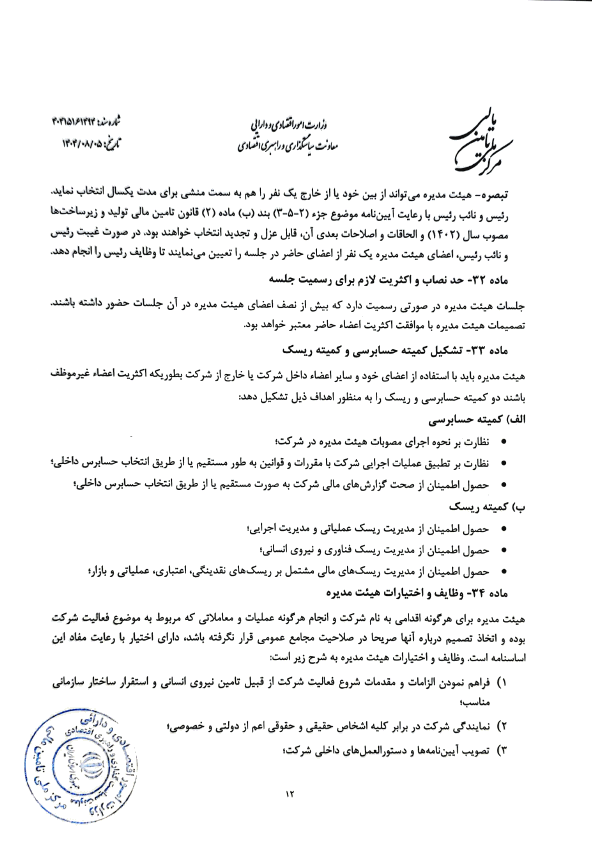 مرکز ملی تامین مالی
وزارت امور اقتصادی و دارایی
معاونت سیاستگذاری و راهبری اقتصادی
شماره سند: ۴۰۴۱۵۱۶۱۴۹۴
تاریخ: ۱۴۰۴/۰۸/۰۵
تبصره- هیئت مدیره می‌تواند از بین خود یا از خارج یک نفر را هم به سمت منشی برای مدت یکسال انتخاب نماید.
رئیس و نائب رئیس با رعایت آیین‌نامه موضوع جزء (۲-۵-۳) بند (ب) ماده (۲) قانون تامین مالی تولید و زیرساخت‌ها
مصوب سال (۱۴۰۲) و الحاقات و اصلاحات بعدی آن، قابل عزل و تجدید انتخاب خواهند بود. در صورت غیبت رئیس
و نائب رئیس، اعضای هیئت مدیره یک نفر از اعضای حاضر در جلسه را تعیین می‌نمایند تا وظایف رئیس را انجام دهد.
ماده ۳۲- حد نصاب و اکثریت لازم برای رسمیت جلسه
جلسات هیئت مدیره در صورتی رسمیت دارد که بیش از نصف اعضای هیئت مدیره در آن جلسات حضور داشته باشند.
تصمیمات هیئت مدیره با موافقت اکثریت اعضاء حاضر معتبر خواهد بود.
ماده ۳۳- تشکیل کمیته حسابرسی و کمیته ریسک
هیئت مدیره باید با استفاده از اعضای خود و سایر اعضاء داخل شرکت یا خارج از شرکت بطوریکه اکثریت اعضاء غیرموظف
باشند دو کمیته حسابرسی و ریسک را به منظور اهداف ذیل تشکیل دهد:
الف) کمیته حسابرسی
• نظارت بر نحوه اجرای مصوبات هیئت مدیره در شرکت؛
• نظارت بر تطبیق عملیات اجرایی شرکت با مقررات و قوانین به طور مستقیم یا از طریق انتخاب حسابرس داخلی؛
• حصول اطمینان از صحت گزارش‌های مالی شرکت به صورت مستقیم یا از طریق انتخاب حسابرس داخلی؛
ب) کمیته ریسک
• حصول اطمینان از مدیریت ریسک عملیاتی و مدیریت اجرایی؛
• حصول اطمینان از مدیریت ریسک فناوری و نیروی انسانی؛
• حصول اطمینان از مدیریت ریسک‌های مالی مشتمل بر ریسک‌های نقدینگی، اعتباری، عملیاتی و بازار؛
ماده ۳۴- وظایف و اختیارات هیئت مدیره
هیئت مدیره برای هرگونه اقدامی به نام شرکت و انجام هرگونه عملیات و معاملاتی که مربوط به موضوع فعالیت شرکت
بوده و اتخاذ تصمیم درباره آنها صریحا در صلاحیت مجامع عمومی قرار نگرفته باشد، دارای اختیار با رعایت مفاد این
اساسنامه است. وظایف و اختیارات هیئت مدیره به شرح زیر است:
۱) فراهم نمودن الزامات و مقدمات شروع فعالیت شرکت از قبیل تامین نیروی انسانی و استقرار ساختار سازمانی
مناسب؛
۲) نمایندگی شرکت در برابر کلیه اشخاص حقیقی و حقوقی اعم از دولتی و خصوصی؛
۳) تصویب آیین‌نامه‌ها و دستورالعمل‌های داخلی شرکت؛
وزارت امور اقتصادی و دارائی
معاونت سیاستگذاری و راهبری اقتصادی
مرکز ملی تامین مالی
۱۲